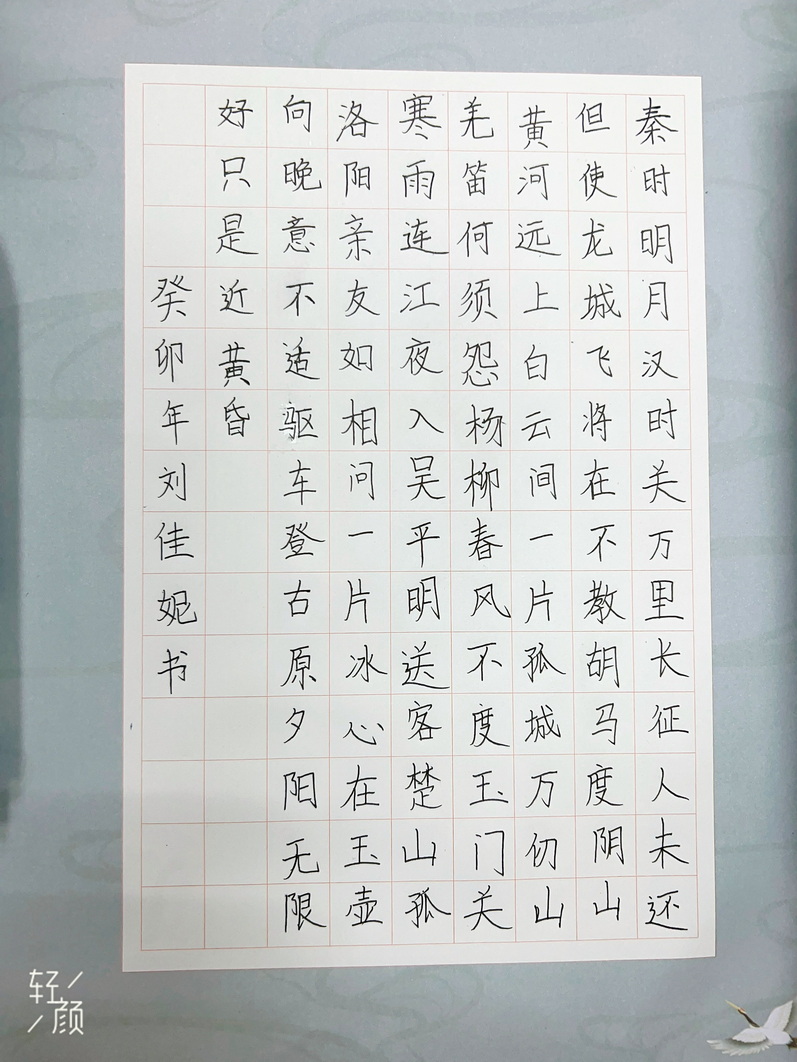 秦时明月汉时关万里长征人未还
但使龙城飞将在不教胡马度阴山
黄河远上白云间一片孤城万仞山
羌笛何须怨杨柳春风不度玉门关
寒雨连江夜入吴平明送客楚山孤
洛阳亲友如相问一片冰心在玉壶
向晚意不适驱车登古原夕阳无限
好只是近黄昏
癸卯年刘佳妮书
轻颜